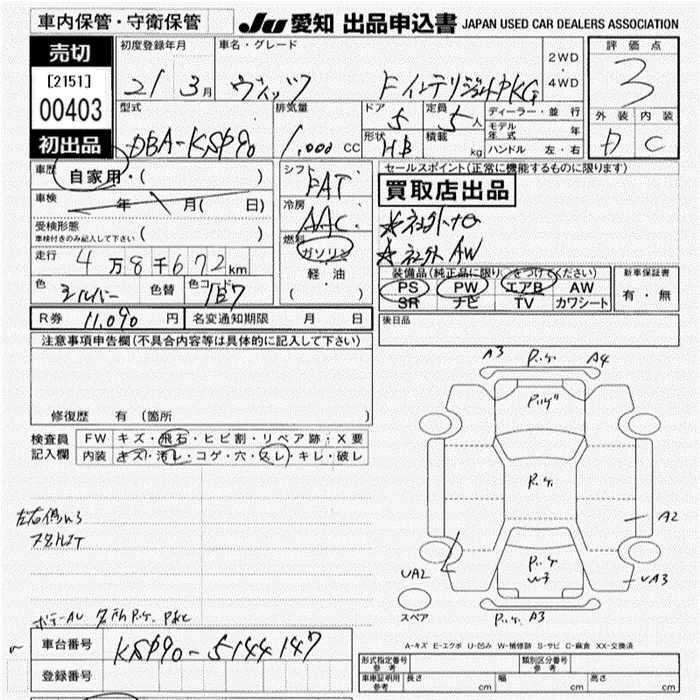 車内保管・守衛保管
JU 愛知 出品申込書 JAPAN USED CAR DEALERS ASSOCIATION
売切
[2151]
00403
初出品
初度登録年月 車名・グレード 2WD ・ 4WD 評価点
21 3月 ヴィッツ Fインテリジェント PKG 3
型式 排気量 ドア 定員 ディーラー・並行 外装 内装
DBA-KSP90 1,000 CC 5 5人 モデル年式 年 D C
形状 HB 積載 kg ハンドル 左・右
車歴 自家用・( )
シフト FAT
セールスポイント(正常に機能するものに限ります)
買取店出品
車検 年 月( 日)
冷房 AAC
受検形態 ( )
車検付きのみ記入して下さい
燃料 ガソリン
軽・油
( )
☆社外ナビ
☆社外AW
走行 4万8千672km
装備品(純正品に限り○をつけてください) 新車保証書
PS PW エアB AW 有・無
SR ナビ TV カワシート
色 シルバー 色替 色コード 1E7
R券 11,090 円 名変通知期限 月 日
後日品
注意事項申告欄(不具合内容等は具体的に記入して下さい)
修復歴 有 (箇所 )
検査員 FW キズ・飛石・ヒビ割・リペア跡・X要
記入欄 内装 キズ・汚レ・コゲ・穴・スレ・キレ・破レ
A3 P.ケ. A4
P.ケ.
A2
P.ケ.
W3
UA2 UA3
スペア
P.ケ. A3
左右側W3
車台番号 KSP90-5144147
登録番号
A-キズ E-エクボ U-凹み W-補修跡 S-サビ C-腐食 XX-交換済
形式指定番号 参考 類別区分番号 参考
車庫証明用 参考 長さ cm 幅 cm 高さ cm